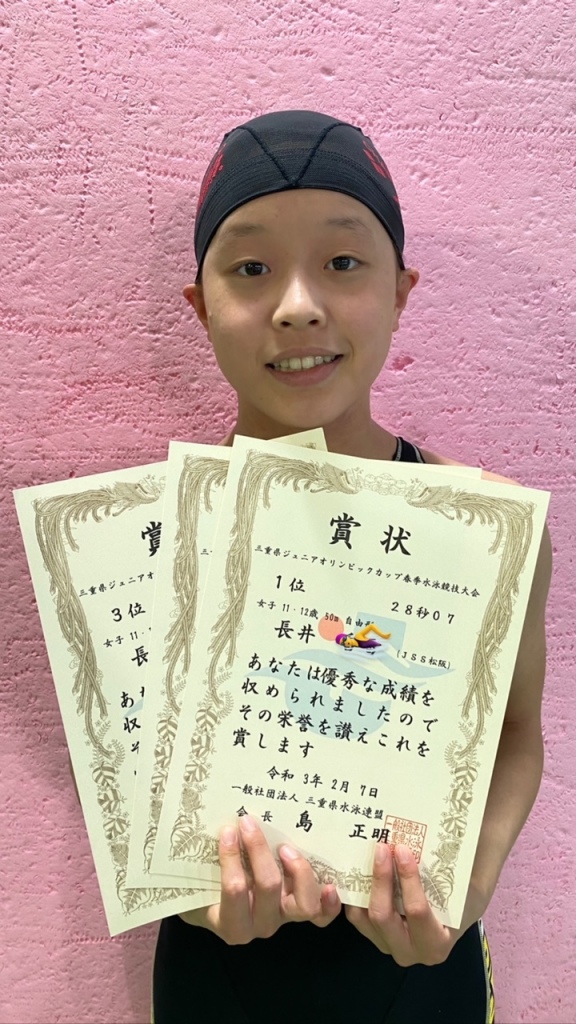 賞状
三重県ジュニアオリンピックカップ春季水泳競技大会
1位 28秒07
女子 11・12歳 50m 自由
長井
(JSS松阪)
あなたは優秀な成績を
収められましたので
その栄誉を讃えこれを
賞します
令和 3年 2月 7日
一般社団法人 三重県水泳連盟
会長 島 正明
賞
三重県ジュニアオ
3位
女子 11・
長
あな
収め
その
賞し
三